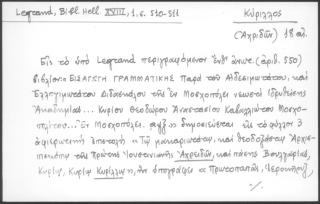 Legrand, Bibl. Hell. XVIII, 1, σ. 510-511
Κύριλλος
(Ἀχριδῶν) 18 αἰ.
Εἰς τὸ ὑπὸ Legrand περιγραφόμενον ἐνθ' ἀνωτ. (ἀριθ. 550)
βιβλίον ΕΙΣΑΓΩΓΗ ΓΡΑΜΜΑΤΙΚΗΣ παρὰ τοῦ Αἰδεσιμωτάτου, καὶ
Ἐλλογιμωτάτου Διδασκάλου τῆς ἐν Μοσχοπόλει νεωστὶ ἱδρυθείσης
Ἀκαδημίας... Κυρίου Θεοδώρου Ἀναστασίου Καβαλλιώτου Μοσχο-
πολίτου... Ἐν Μοσχοπόλει. αψξ" δημοσιεύεται εἰς τὸ φύλλον 3
ἀφιερωτικὴ ἐπιστολὴ "Τῷ μακαριωτάτῳ, καὶ θεοδοξάστῳ Ἀρχιε-
πισκόπῳ τῆς Πρώτης Ἰουστινιανῆς Ἀχριδῶν, καὶ πάσης Βουλγαρίας,
Κυρίῳ, Κυρίῳ Κυρίλλῳ", ἣν ὑπογράφει "Πρωτοπαπᾶς, Ἱεροκῆρυξ,
./.